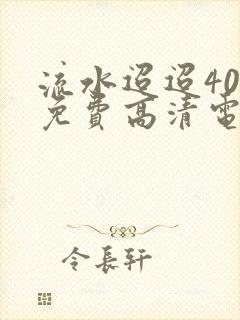 流水迢迢40
免费高清電
令長轩